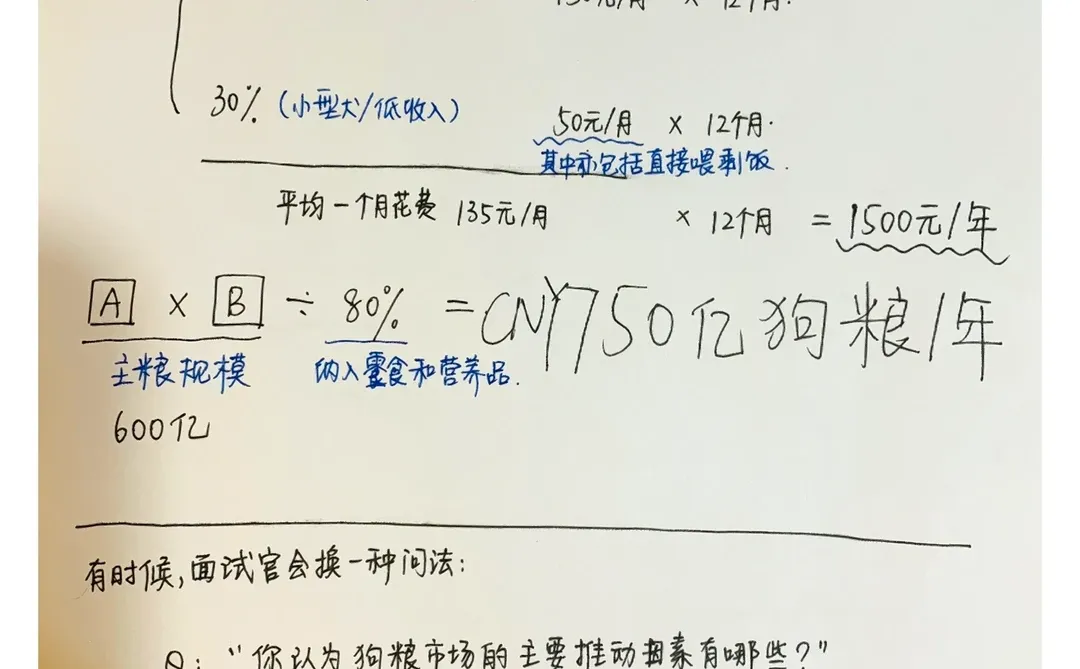 30% (小型犬/低收入) 50元/月 × 12个月.
其中亦包括直接喂剩饭.
平均一个月花费 135元/月 × 12个月 = 1500元/年
A × B ÷ 80% = CNY750亿狗粮/年
主粮规模 纳入零食和营养品.
600亿
有时候,面试官会换一种问法:
Q: "你认为狗粮市场的主要推动因素有哪些?"